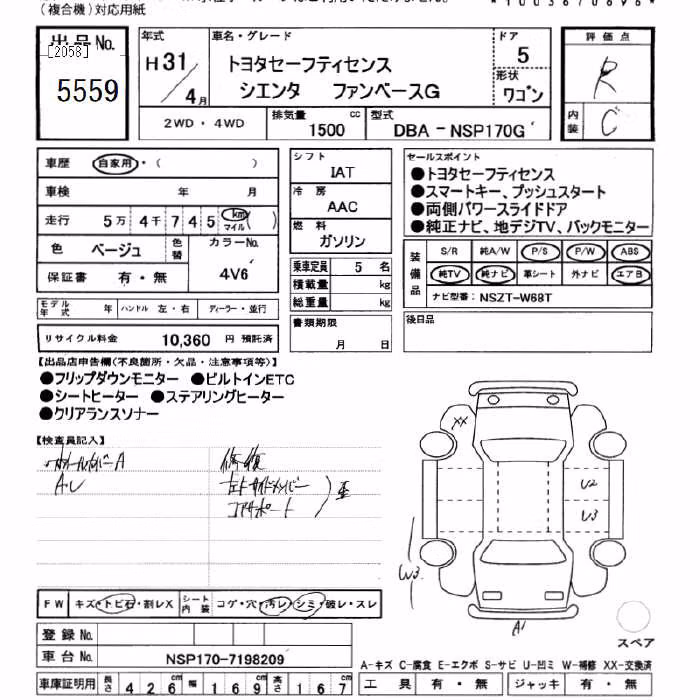 (複合機)対応用紙
出品No.
[2058]
5559
年式
H31/4月
車名・グレード
トヨタセーフティセンス
シエンタ ファンベースG
ドア
5
形状
ワゴン
評価点
R
内装
C
2WD・4WD
排気量
1500 cc
型式
DBA-NSP170G
車歴 自家用・( )
車検 年 月
走行 5万4千745 km マイル ( )
色 ベージュ 色替 カラーNo. 4V6
保証書 有・無
モデル年式 年 ハンドル 左・右 ディーラー・並行
リサイクル料金 10,360 円 預託済
シフト
IAT
冷房
AAC
燃料
ガソリン
乗車定員 5 名
積載量 kg
総重量 kg
書類期限
月 日
セールスポイント
●トヨタセーフティセンス
●スマートキー、プッシュスタート
●両側パワースライドドア
●純正ナビ、地デジTV、バックモニター
装備品
S/R 純A/W P/S P/W ABS
純TV 純ナビ 革シート 外ナビ エアB
ナビ型番: NSZT-W68T
後日品
【出品店申告欄(不良箇所・欠品・注意事項等)】
●フリップダウンモニター ●ビルトインETC
●シートヒーター ●ステアリングヒーター
●クリアランスソナー
【検査員記入】
A・U
修復
左ドサイドメンバー
コアサポート
歪
XX
U2
U3
W3
A1
FW キズ・トビ石・割レX シート内装 コゲ・穴・汚レ・シミ・破レ・スレ
登録No.
車台No. NSP170-7198209
車庫証明用 長さ 426cm 幅 169cm 高さ 167cm
スペア
A-キズ C-腐食 E-エクボ S-サビ U-凹ミ W-補修 XX-交換済
工具 有・無 ジャッキ 有・無